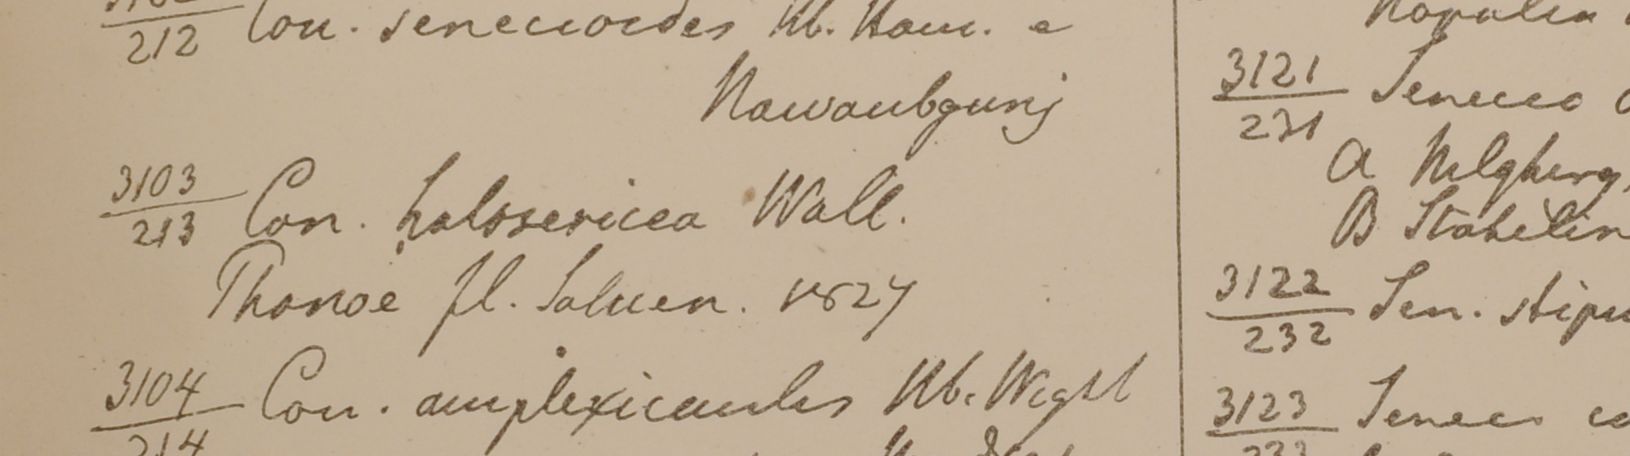 212 Con. senecioides Hb. Ham. e
Nawaubgunj
3103
213 Con. holosericea Wall.
Thanoe fl. Saluen. 1827
3104
214 Con. amplexicaulis Hb. Wight
3121
231 Senecio
a Nelghery
B Stabilin
3122
232 Sen. stipu
3123
233 Senecio